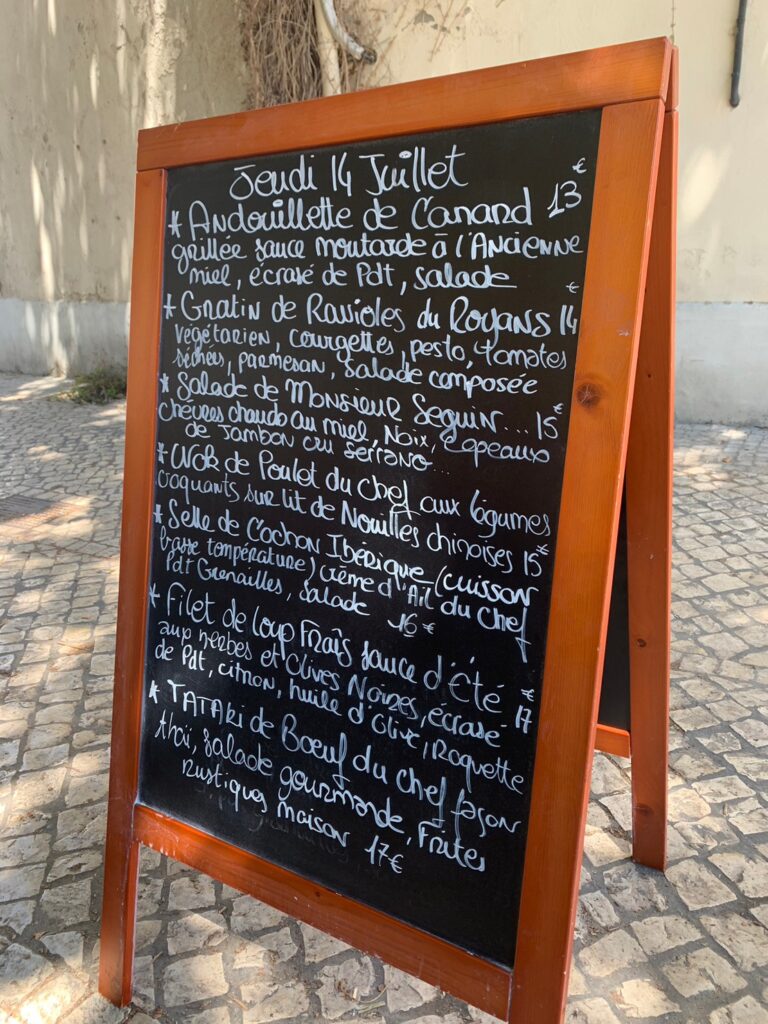 Jeudi 14 Juillet
* Andouillette de Canard 13 €
grillée sauce moutarde à l'Ancienne
miel, écrasé de Pdt, salade
* Gratin de Ravioles du Royans 14 €
végétarien, courgettes, pesto, tomates
séchées, parmesan, salade composée
* Salade de Monsieur Seguin... 15 €
chèvres chauds au miel, Noix, copeaux
de Jambon cru serrano...
* Wok de Poulet du chef aux légumes
croquants sur lit de Nouilles chinoises 15 €
* Selle de Cochon Ibérique (cuisson
basse température) crème d'Ail du chef
Pdt Grenailles, salade 16 €
* Filet de loup Fraîs sauce d'été
aux herbes et Olives Noires, écrasé 17 €
de Pdt, citron, huile d'Olive, Roquette
* TATAKi de Boeuf du chef façon
thaï, salade gourmande, Frites
rustiques maison 17 €